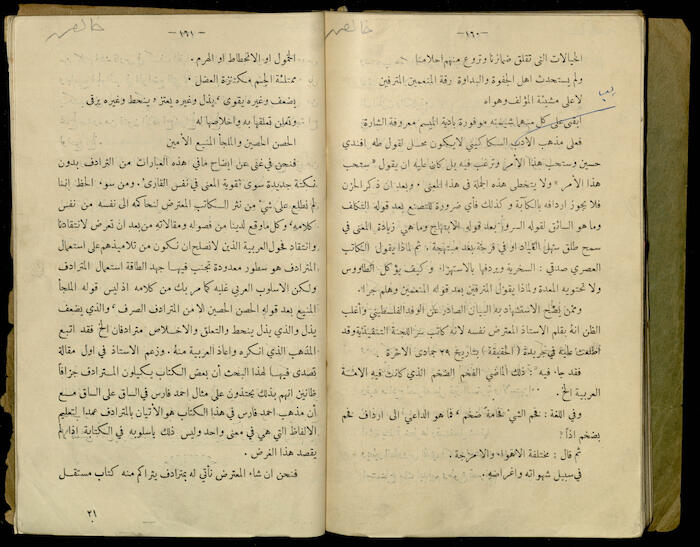 خالص
— ١٦٠ —
الخيالات التى تقلق ضمائرنا وتروع منهم احلامنا
ولم يستحدث اهل الجفوة والبداوة رقة المنعمين المترفين
لا على مشيئة المؤلف وهواه
أبقى على كل منهما شيمته موفورة بادية الميسم معروفة الشارة
فعلى مذهب الأدب السكاكيني لا يكون محل لقول طه افندي
حسين وستحب هذا الأمر وترغب فيه بل كان عليه ان يقول «ستحب
هذا الأمر» ولا يتخطى هذه الجملة في هذا المعنى، وبعد ان ذكر الحزن
فلا يجوز اردافه بالكآبة وكذلك فأي ضرورة للتصنع بعد قوله التكلف
وما هو السائق لقوله السرور بعد قوله الابتهاج وما هي زيادة المعنى في
سمح طلق سهل القياد او في فرحة بعد مبتهجة. ثم لماذا يقول الكاتب
العصري صدقي: السخرية ويردفها بالاستهزاء وكيف يؤكل الطاووس
ولا تحتويه المعدة ولماذا يقول المترفين بعد قوله المنعمين وهلم جرا.
وممن يصح الاستشهاد به البيان الصادر عن الوفد الفلسطيني وأغلب
الظن انه بقلم الاستاذ المعترض نفسه لانه كاتب سر اللجنة التنفيذية وقد
اطلعت عليه في جريدة (الحقيقة) بتاريخ ٢٩ جمادى الاخرة
فقد جاء فيه: ذلك الماضي الفخم الضخم الذي كانت فيه الامة
العربية الخ.
وفي اللغة: فخم الشيء فخامة ضخم، فما هو الداعي الى ارداف فخم
بضخم اذاً؟
ثم قال: مختلفة الاهواء والامزجة.
في سبيل شهواته واغراضه.
خالص
— ١٦١ —
الخمول او الانحطاط او الهرم.
ممتلئة الجسم مكتنزة العضل.
يضعف وغيره يقوى، يذل وغيره يعتز، ينحط وغيره يرقى
وتعلن تعلقها به واخلاصها له
الحصن الحصين والملجأ المنيع الأمين
فنحن في غنى عن ايضاح ما في هذه العبارات من الترادف بدون
نكتة جديدة سوى تقوية المعنى في نفس القارئ. ومن سوء الحظ اننا
لم نطلع على شيء من نثر الكاتب المعترض لنحاكمه الى نفسه من نفس
كلامه، وكل ما وقع لدينا من فصوله ومقالاته من بعد ان تعرض لانتقادنا
وانتقاد فحول العربية الذين لا نصلح ان نكون من تلاميذهم على استعمال
المترادف هو سطور معدودة تجنب فيها جهد الطاقة استعمال المترادف
ولكن الاسلوب العربي غلبه كما مر بك من كلامه اذ ليس قوله الملجأ
المنيع بعد قوله الحصن الحصين الا من المترادف الصرف، والذي يضعف
يذل والذي يذل ينحط والتعلق والاخلاص مترادفان الخ فقد اتبع
المذهب الذي انكره واعاذ العربية منه. وزعم الاستاذ في اول مقالة
تصدى فيها لهذا البحث أن بعض الكتاب يكيلون المترادف جزافاً
ظانين انهم بذلك يحتذون على مثال احمد فارس في الساق على الساق مع
أن مذهب احمد فارس في هذا الكتاب هو الأتيان بالمترادف عمدا لتعليم
الالفاظ التي هي في معنى واحد وليس ذلك باسلوبه في الكتابة اذا لم
يقصد هذا الغرض.
فنحن ان شاء المعترض نأتي له بمترادف يتراكم منه كتاب مستقل
٢١